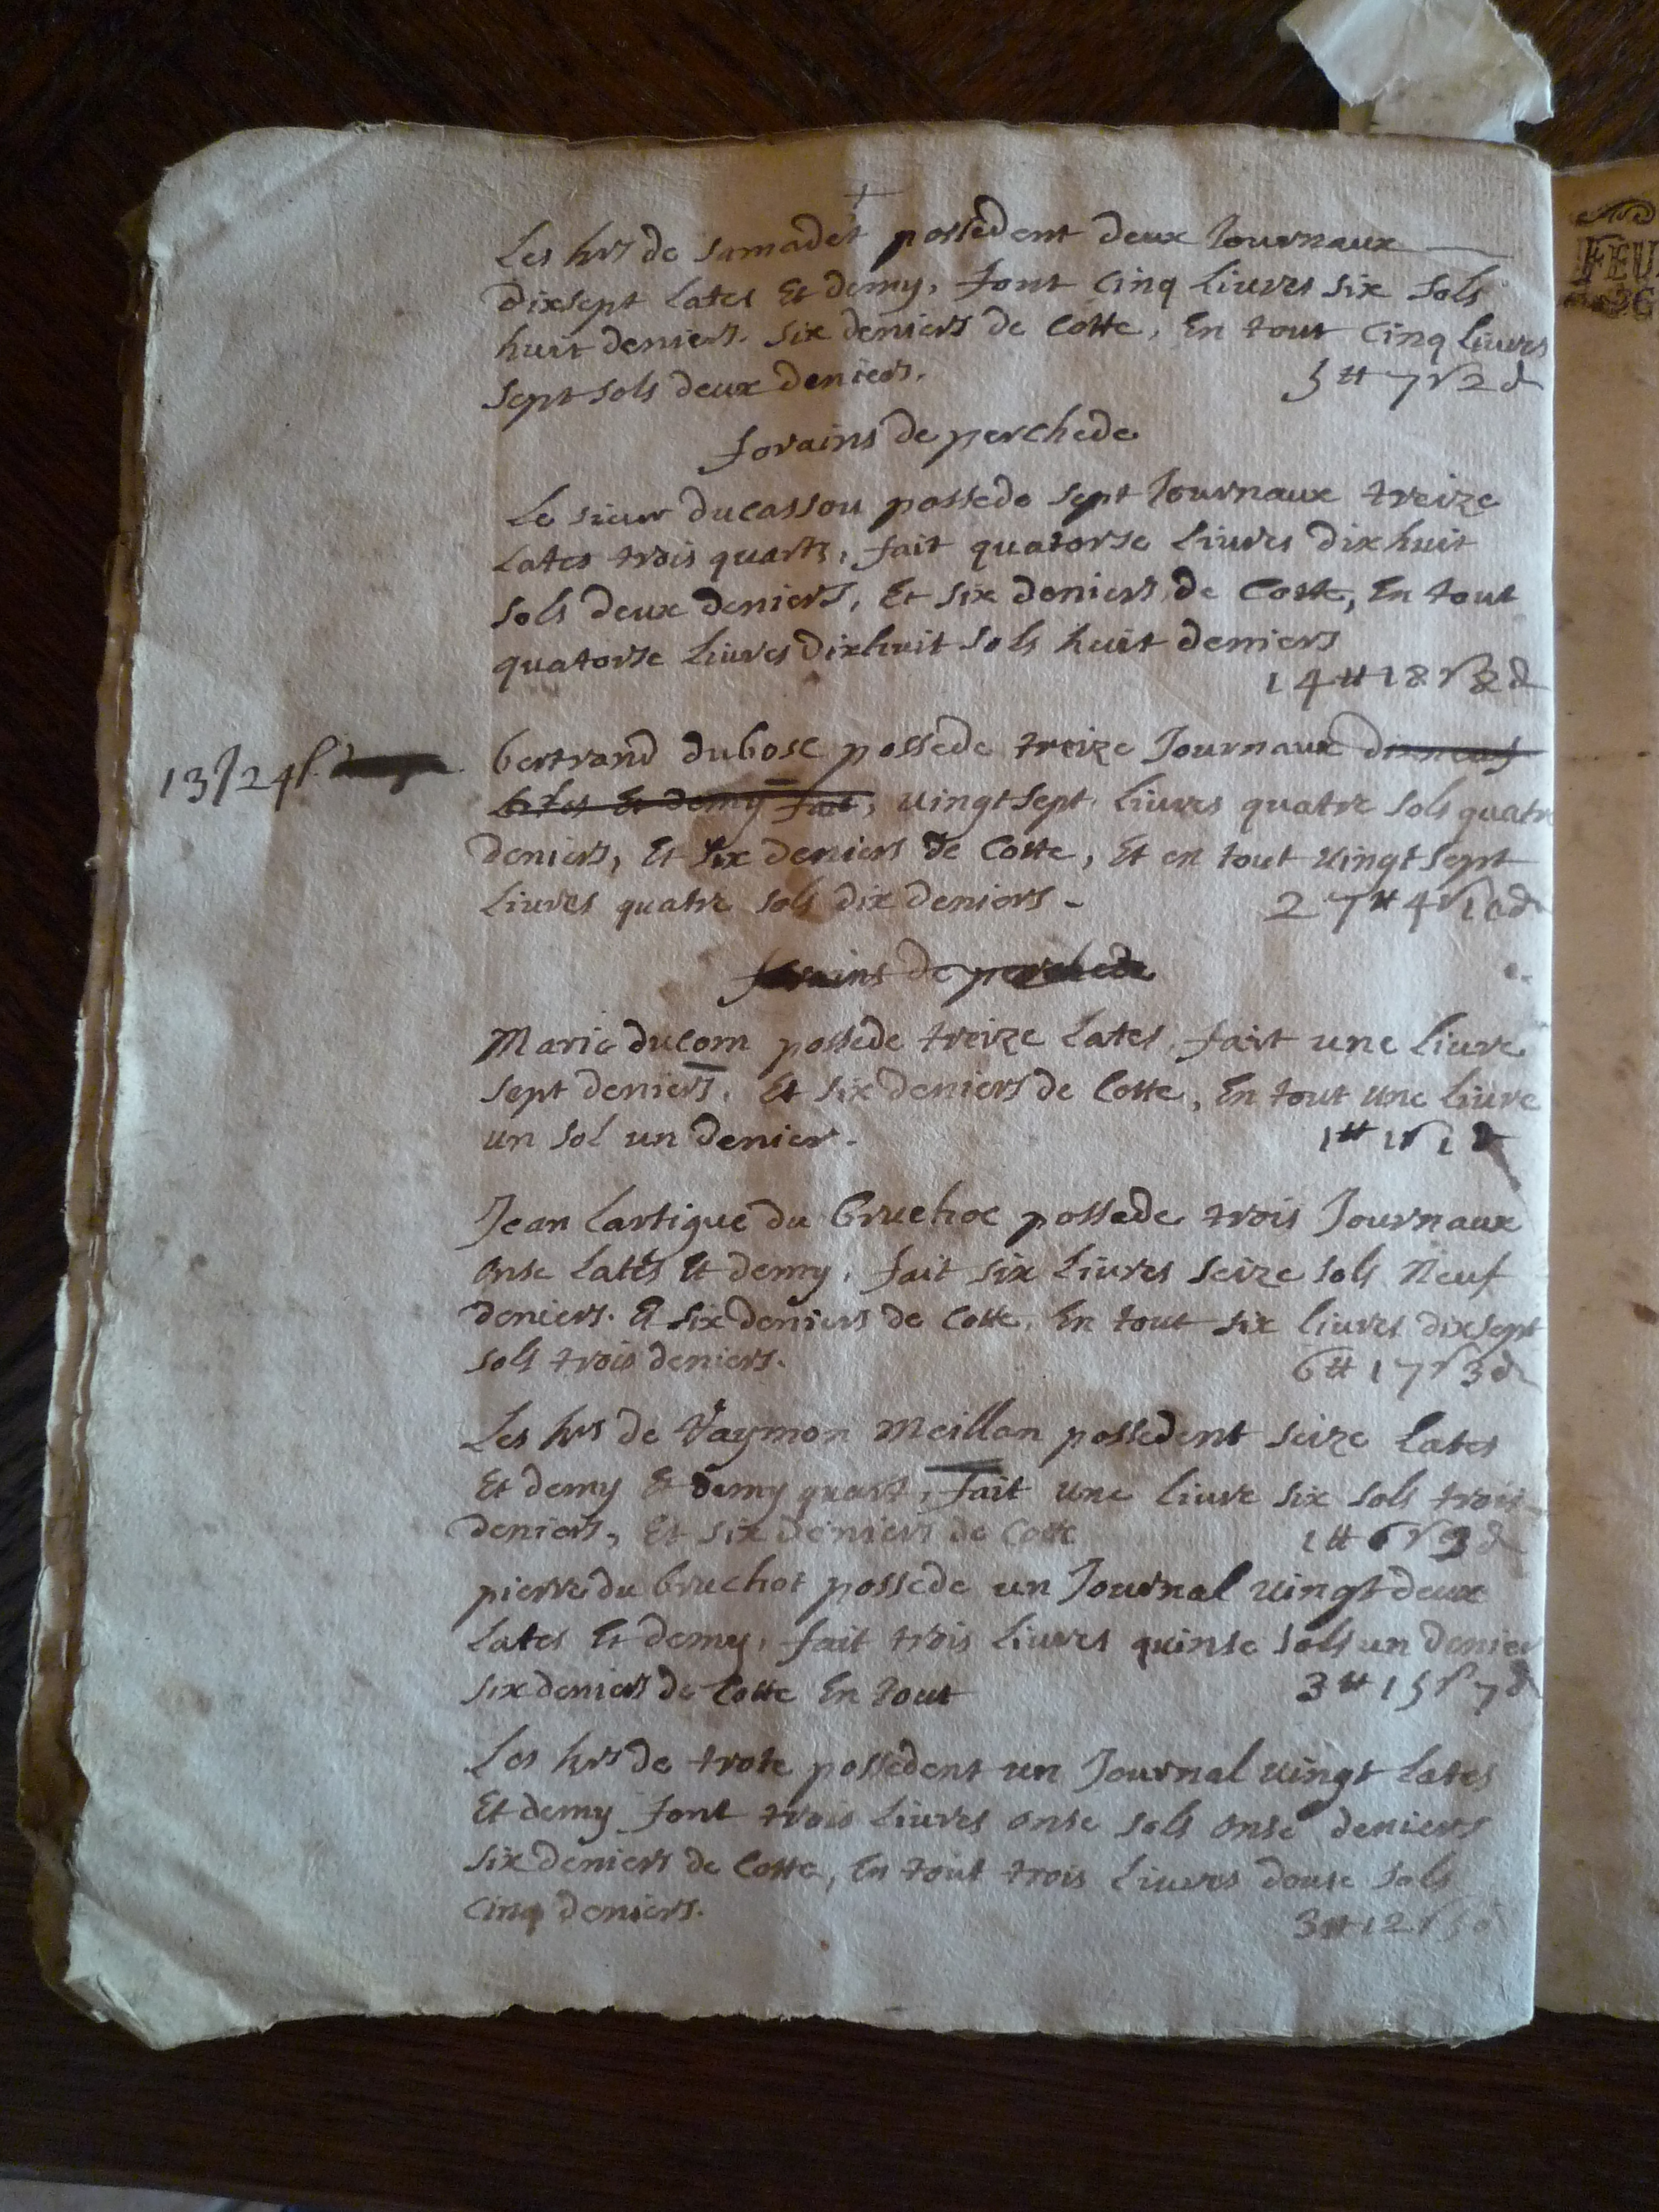 +
Les hrs de samadet possedent deux Journaux
dixsept Lates Et demy, font cinq Liures six sols
huit deniers. six deniers de Cotte, En tout cinq liures
sept sols deux deniers. 5₶ 7s 2d
forains de perchede
Le sieur ducassou possede sept Journaux treize
Lates trois quarts, fait quatorse Liures dixhuit
sols deux deniers, Et six deniers de Cotte, En tout
quatorse Liures dixhuit sols huit deniers
14₶ 18s 8d
bertrand dubosc possede treize Journaux dixneuf
13J 24l
lates Et demy fait, uingtsept Liures quatre sols quatre
deniers, Et six deniers de Cotte, Et en tout uingtsept
Liures quatre sols dix deniers - 27₶ 4s 10d
forains de perchede
Marie ducom possede treize Lates, fait une liure
sept deniers, Et six deniers de Cotte, En tout une liure
un sol un denier. 1₶ 1s 1d
Jean Lartigue du bruchoc possede trois Journaux
onse Lates Et demy, fait six Liures seize sols Neuf
deniers. Et six deniers de Cotte, En tout six liures dixsept
sols trois deniers. 6₶ 17s 3d
Les hrs de Raymon Meillan possedent seize Lates
Et demy Et demy quart, fait une liure six sols trois
deniers, Et six deniers de Cotte 1₶ 6s 9d
pierre du bruchot possede un Journal uingtdeux
Lates Et demy, fait trois Liures quinse sols un denier
six deniers de Cotte En tout 3₶ 15s 7d
Les hrs de trote possedent un Journal uingt Lates
Et demy font trois Liures onse sols onse deniers
six deniers de Cotte, En tout trois Liures douse sols
cinq deniers. 3₶ 12s 5d
FEU